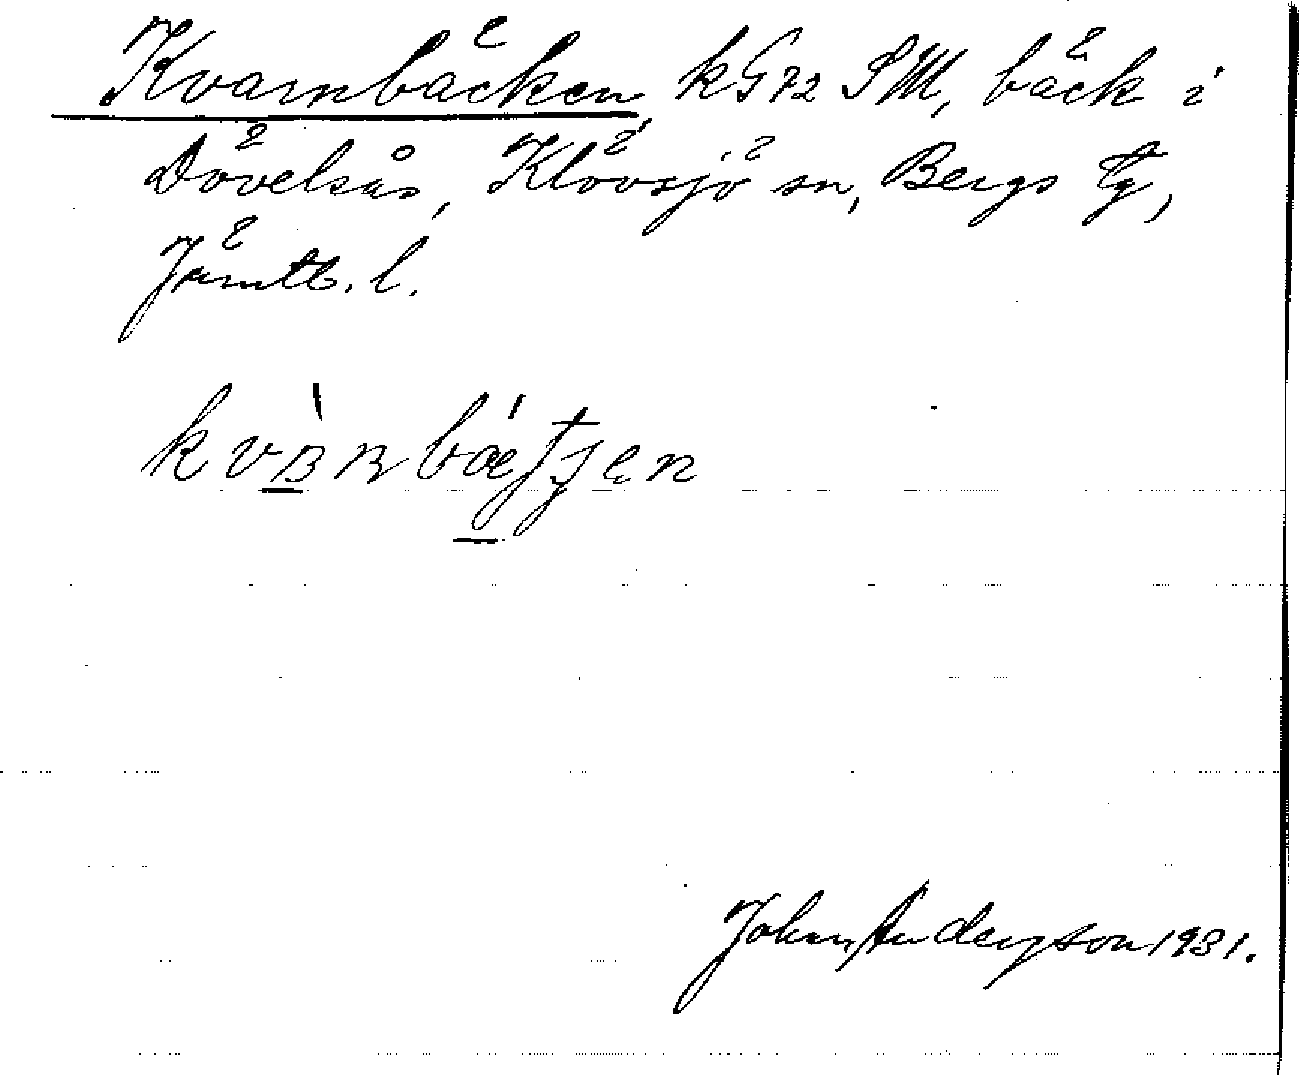 Kvarnbäcken, kG72 SM, bäck i
Dövelsås, Klövsjö sn, Bergs tg,
Jämtl. l.
Johan Andersson 1931.